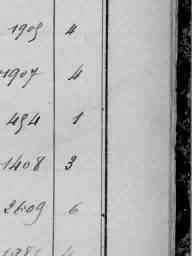 1909 4
1907 4
494 1
1408 3
2609 6